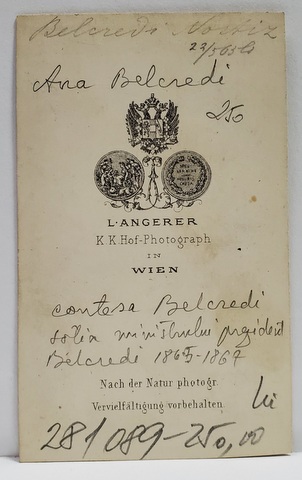 Belcredi Nostiz
23/5656
Ana Belcredi
250
L. ANGERER
K.K. Hof-Photograph
IN
WIEN
contesa Belcredi
soția ministrului președinte
Belcredi 1865-1867
Nach der Natur photogr.
Vervielfältigung vorbehalten.
lei
281089-250,00